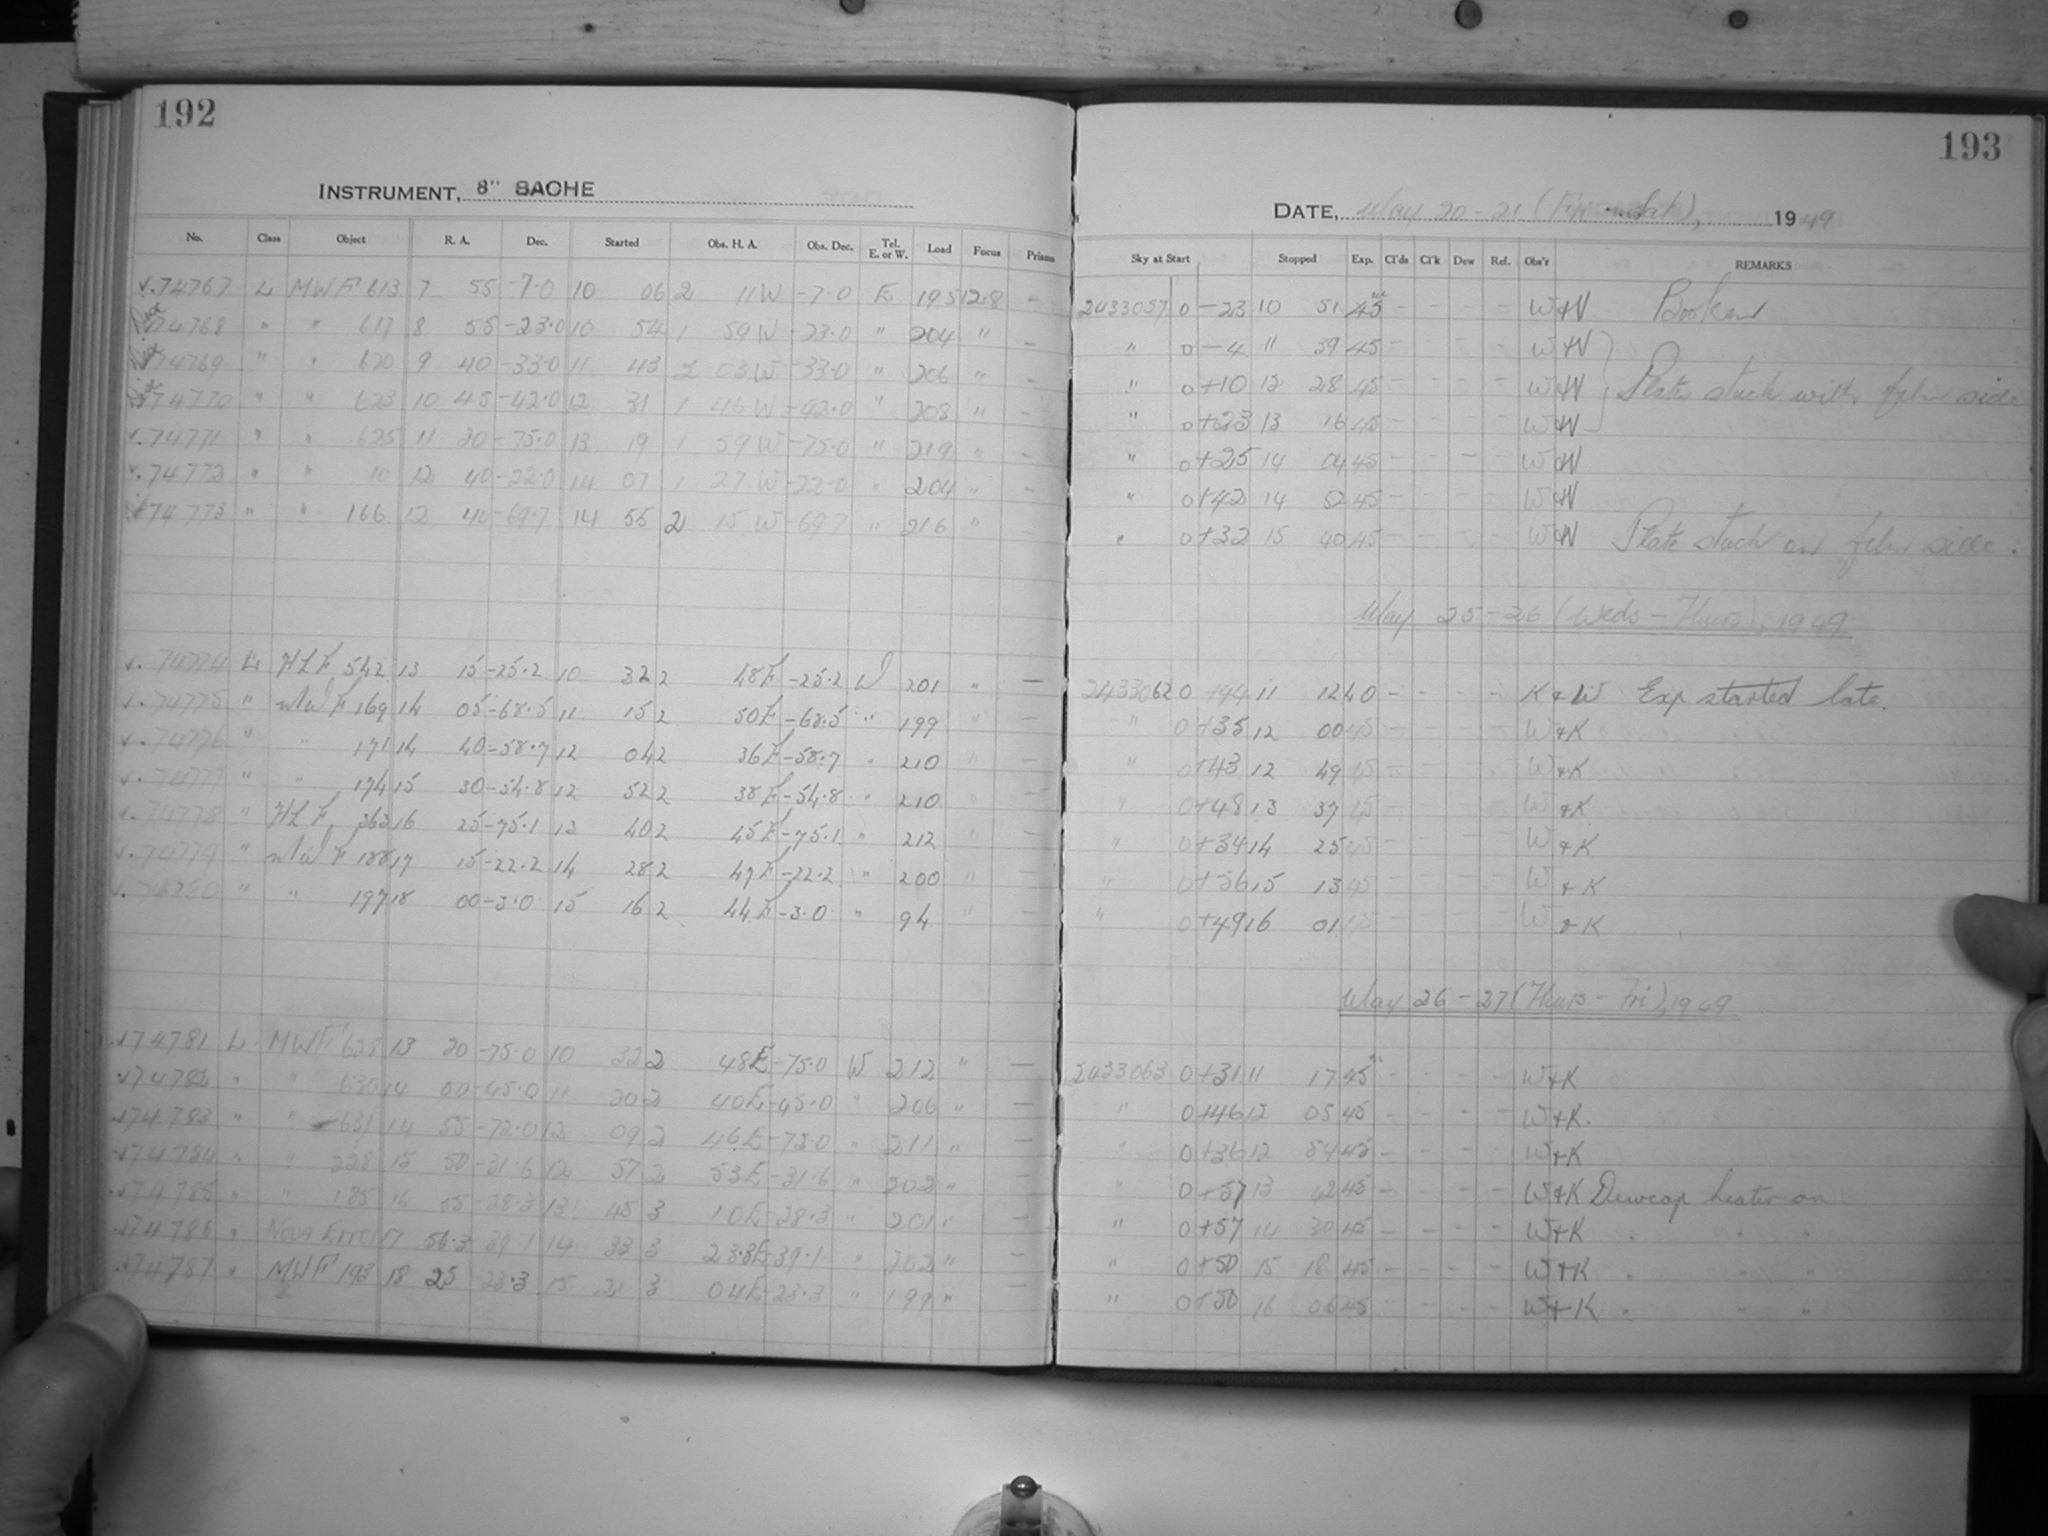 192
INSTRUMENT, 8" BACHE
No. Class Object R. A. Dec. Started Obs. H. A. Obs. Dec. Tel. E. or W. Load Focus Prisms
74767 L MWF 613 7 55 -7.0 10 06 2 11W -7.0 E 195 12.8 -
74768 " " 617 8 55 -23.0 10 54 1 59W -23.0 " 204 " -
74769 " " 620 9 40 -33.0 11 43 2 03W -33.0 " 206 " -
74770 " " 623 10 45 -42.0 12 31 1 46W -42.0 " 208 " -
74771 " " 625 11 20 -75.0 13 19 1 59W -75.0 " 219 " -
74772 " " 10 12 40 -22.0 14 07 1 27W -22.0 " 204 " -
74773 " " 166 12 40 -69.7 14 55 2 15W -69.7 " 216 " -
74774 L HLF 542 13 15 -25.2 10 32 2 48E -25.2 W 201 " -
74775 " MWF 169 14 05 -68.5 11 15 2 50E -68.5 " 199 " -
74776 " " 171 14 40 -58.7 12 04 2 36E -58.7 " 210 " -
74777 " " 174 15 30 -54.8 12 52 2 38E -54.8 " 210 " -
74778 " HLF 363 16 25 -75.1 13 40 2 45E -75.1 " 212 " -
74779 " MWF 188 17 15 -22.2 14 28 2 47E -22.2 " 200 " -
74780 " " 197 18 00 -3.0 15 16 2 44E -3.0 " 94 " -
74781 L MWF 628 13 20 -75.0 10 32 2 48E -75.0 W 212 " -
74782 " " 630 14 00 -45.0 11 20 2 40E -45.0 " 206 " -
74783 " " 631 14 55 -72.0 12 09 2 46E -72.0 " 211 " -
74784 " " 228 15 50 -31.6 12 57 2 53E -31.6 " 202 " -
74785 " " 185 16 55 -28.3 13 45 3 10E -28.3 " 201 " -
74786 " Nova 17 56.3 -39.1 14 33 3 23.3E -39.1 " 202 " -
74787 " MWF 193 18 25 -23.3 15 21 3 04E -23.3 " 199 " -
193
DATE, May 20-21 1949
Sky at Start Stopped Exp. Cl'ds Cl'k Dew Ref. Obs'r REMARKS
2433057 0 -23 10 51 45 - - - - W&N
" 0 -4 11 39 45 - - - - W&N
" 0 +10 12 28 45 - - - - W&N Plate stuck with film side
" 0 +23 13 16 45 - - - - W&N
" 0 +25 14 04 45 - - - - W&N
" 0 +42 14 52 45 - - - - W&N
" 0 +32 15 40 45 - - - - W&N Plate stuck on film side.
May 25-26 (Weds-Thurs), 1949
2433062 0 +44 11 12 40 - - - - K&W Exp started late.
" 0 +35 12 00 45 - - - - W&K
" 0 +43 12 49 45 - - - - W&K
" 0 +48 13 37 45 - - - - W&K
" 0 +34 14 25 45 - - - - W&K
" 0 +56 15 13 45 - - - - W&K
" 0 +49 16 01 45 - - - - W&K
May 26-27 (Thurs-Fri), 1949
2433063 0 +31 11 17 45 - - - - W&K
" 0 +46 12 05 45 - - - - W&K.
" 0 +36 12 54 45 - - - - W&K
" 0 +57 13 42 45 - - - - W&K Dewcap heater on
" 0 +57 14 30 45 - - - - W&K " " "
" 0 +50 15 18 45 - - - - W&K " " "
" 0 +50 16 06 45 - - - - W&K " " "